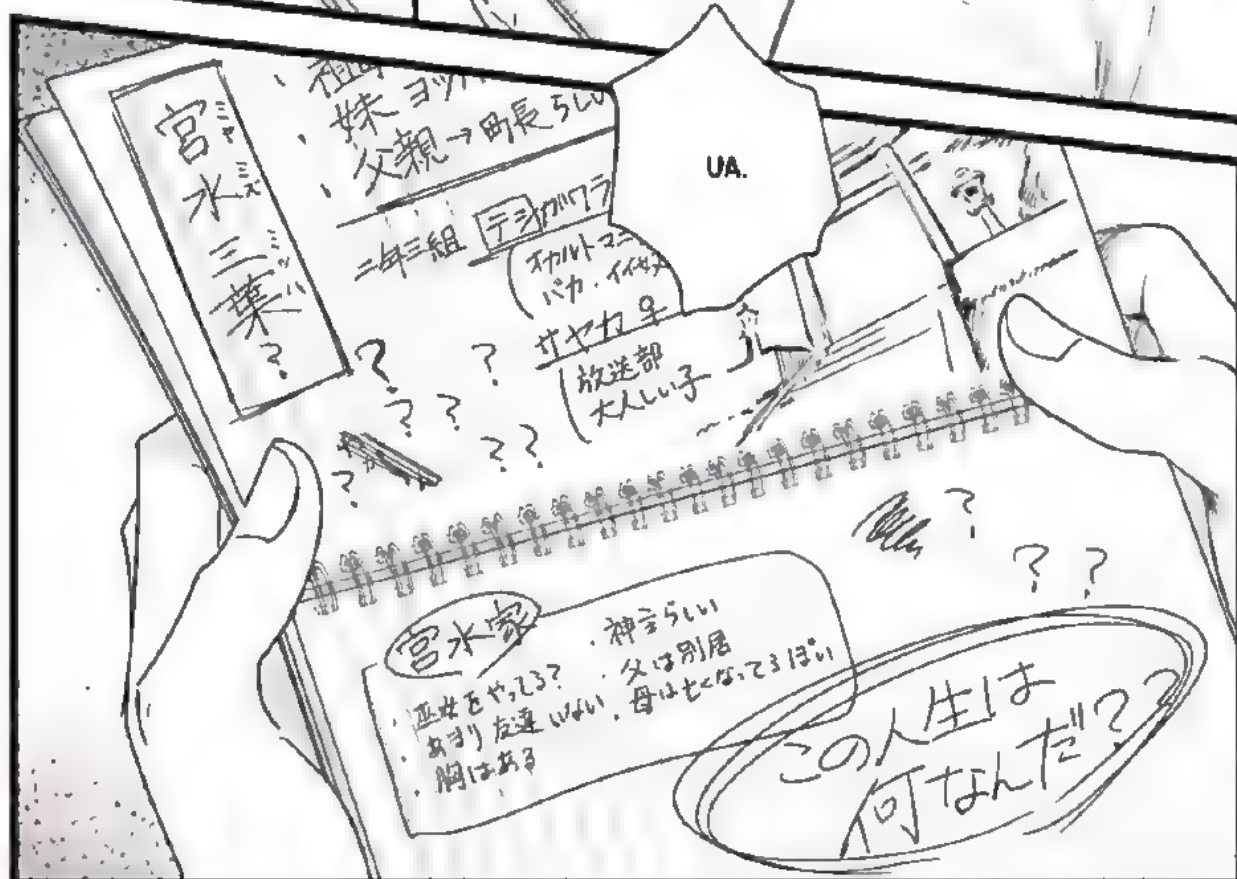 宮水三葉?
ミヤミズミツハ
妹 ヨツ
父親→町長らしい
UA.
二年三組 テシガワラ
オカルトマニ
バカ・イイヤツ
サヤカ ♀
放送部
大人しい子
?
? ?
? ?
? ? ?
?
? ?
宮水家
・巫女をやってる?
・あまり友達いない
・胸はある
・神主らしい
・父は別居
・母は亡くなってるぽい
この人生は
何なんだ??